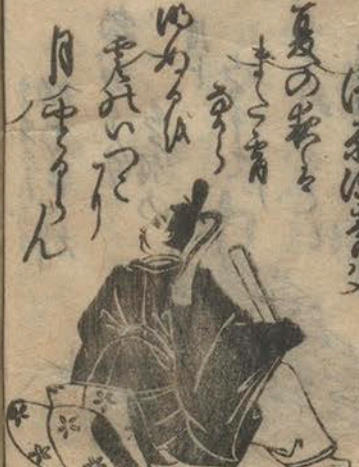 夏の夜は
また宵
なから
明ぬるを
雲のいつこに
月やとるらん